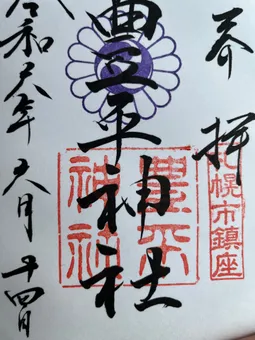 奉拝
札幌市鎮座
豊平神社
豊平
神社
令和六年五月十四日